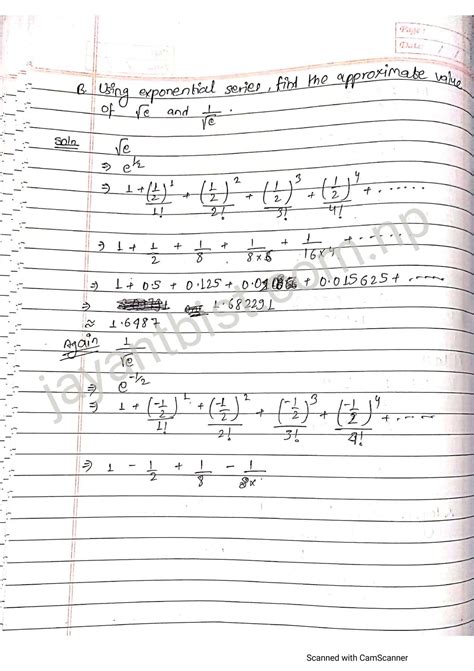 Page:
Date: / /
Q. Using exponential series, find the approximate value
of √e and 1/√e.
Soln √e
⇒ e^1/2
⇒ 1 + (1/2)^1/1! + (1/2)^2/2! + (1/2)^3/3! + (1/2)^4/4! + ......
⇒ 1 + 1/2 + 1/8 + 1/8×6 + 1/16×4 + ......
⇒ 1 + 0.5 + 0.125 + + 0.015625 + ....
⇒ 1.682291
≈ 1.6487
Again 1/√e
⇒ e^-1/2
⇒ 1 + (-1/2)^1/1! + (-1/2)^2/2! + (-1/2)^3/3! + (-1/2)^4/4! + .....
⇒ 1 - 1/2 + 1/8 - 1/8×
jayantbist.com.np
Scanned with CamScanner